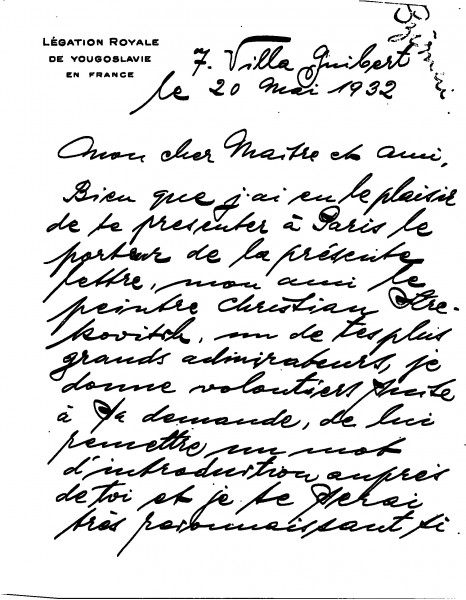 LÉGATION ROYALE
DE YOUGOSLAVIE
EN FRANCE
7. Villa Guibert
le 20 Mai 1932
Mon cher Maître et ami,
Bien que j'ai eu le plaisir
de te presenter à Paris le
porteur de la présente
lettre, mon ami le
peintre Christian Kre-
kovitch, un de tes plus
grands admirateurs, je
donne volontiers suite
à sa demande, de lui
remettre un mot
d'introduction auprès
de toi et je te serai
très reconnaissant si